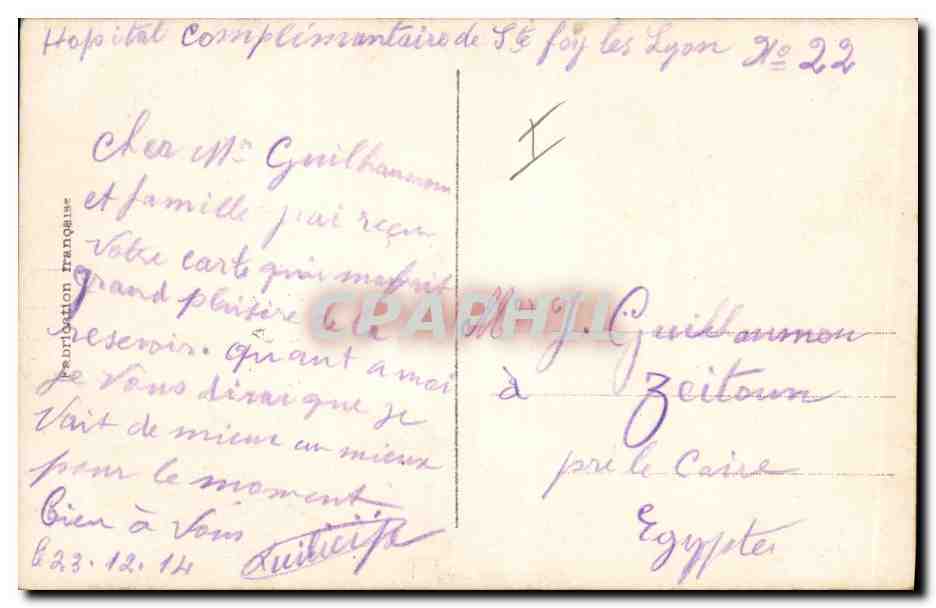 Hopital complimentaire de Ste foy les Lyon No 22
Cher Mr Guilhaumon
et famille j'ai reçu
Votre carte qui ma fait
grand plaisire de la
resevoir. quant a moi
je Vous dirai que je
Vait de mieux en mieux
pour le moment
bien à Vous
le 23.12.14
Fabrication française
I
Mr J. Guilhaumon
à Zeitoun
pre le Caire
Egypte
CPAPHIL